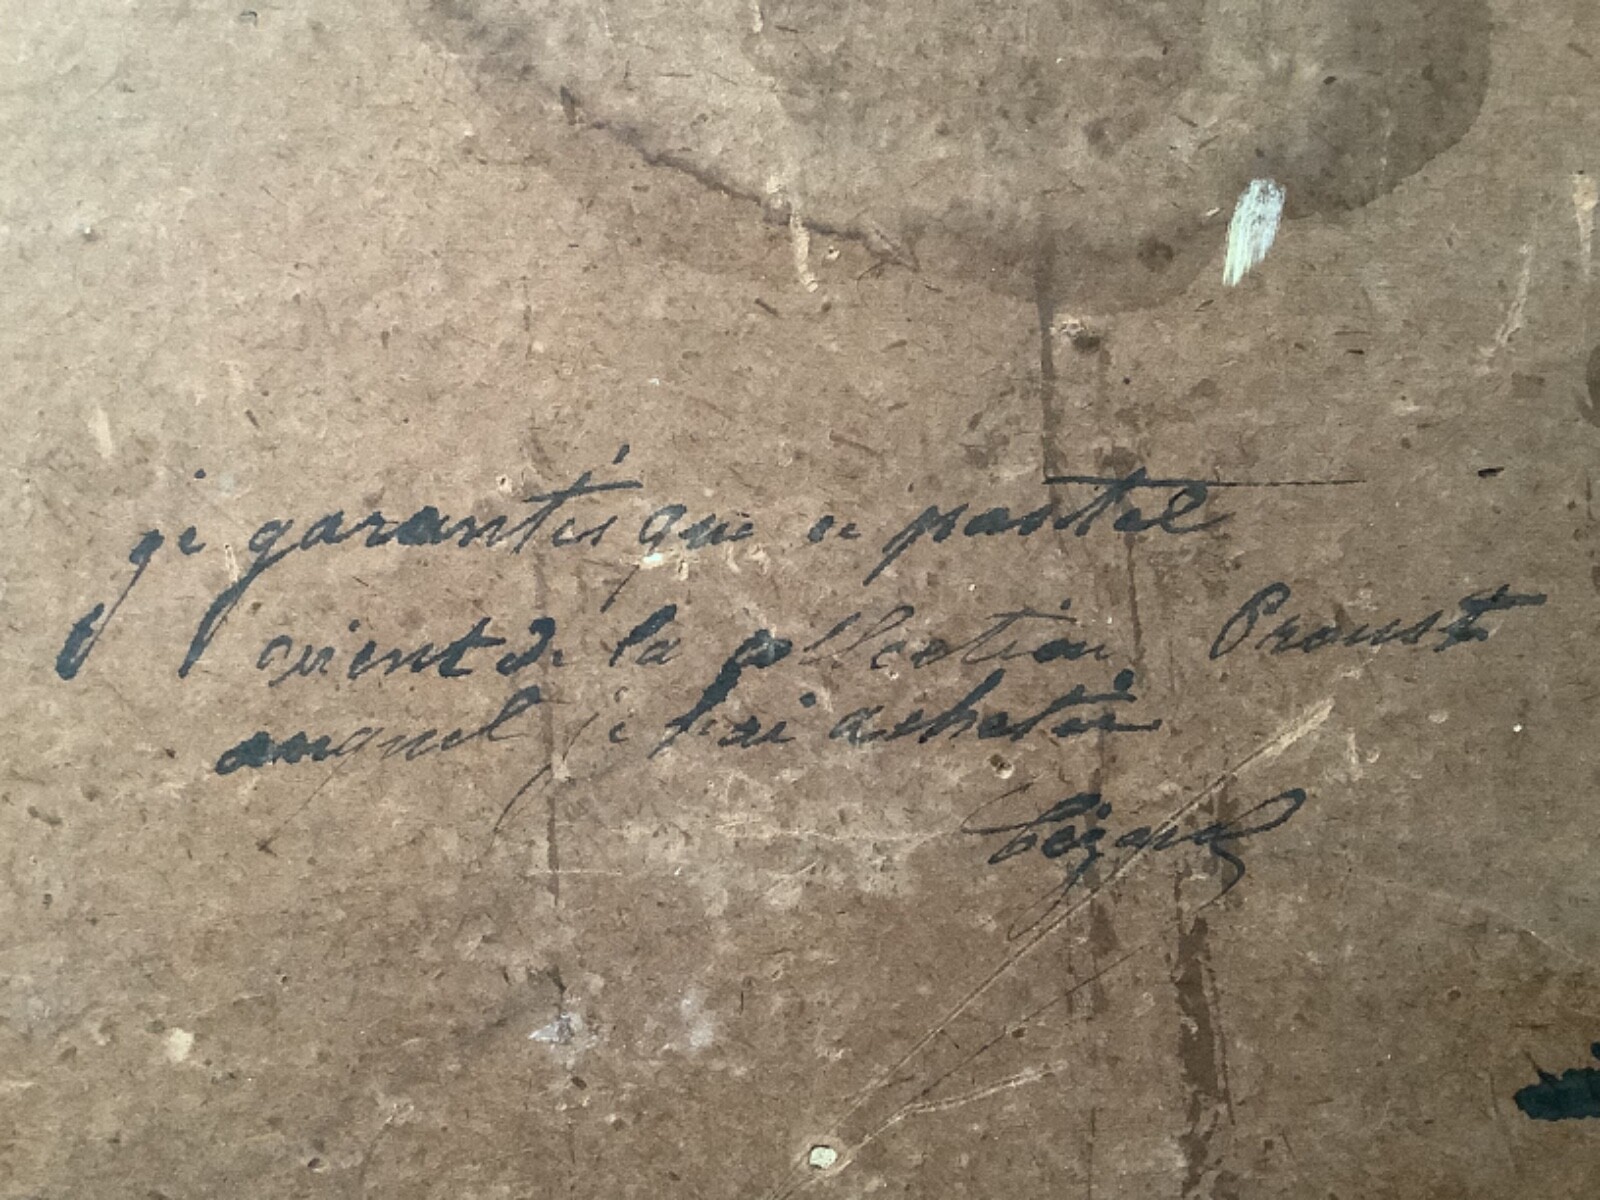 je garantis que ce pastel
vient de la collection Proust
auquel je l'ai acheter